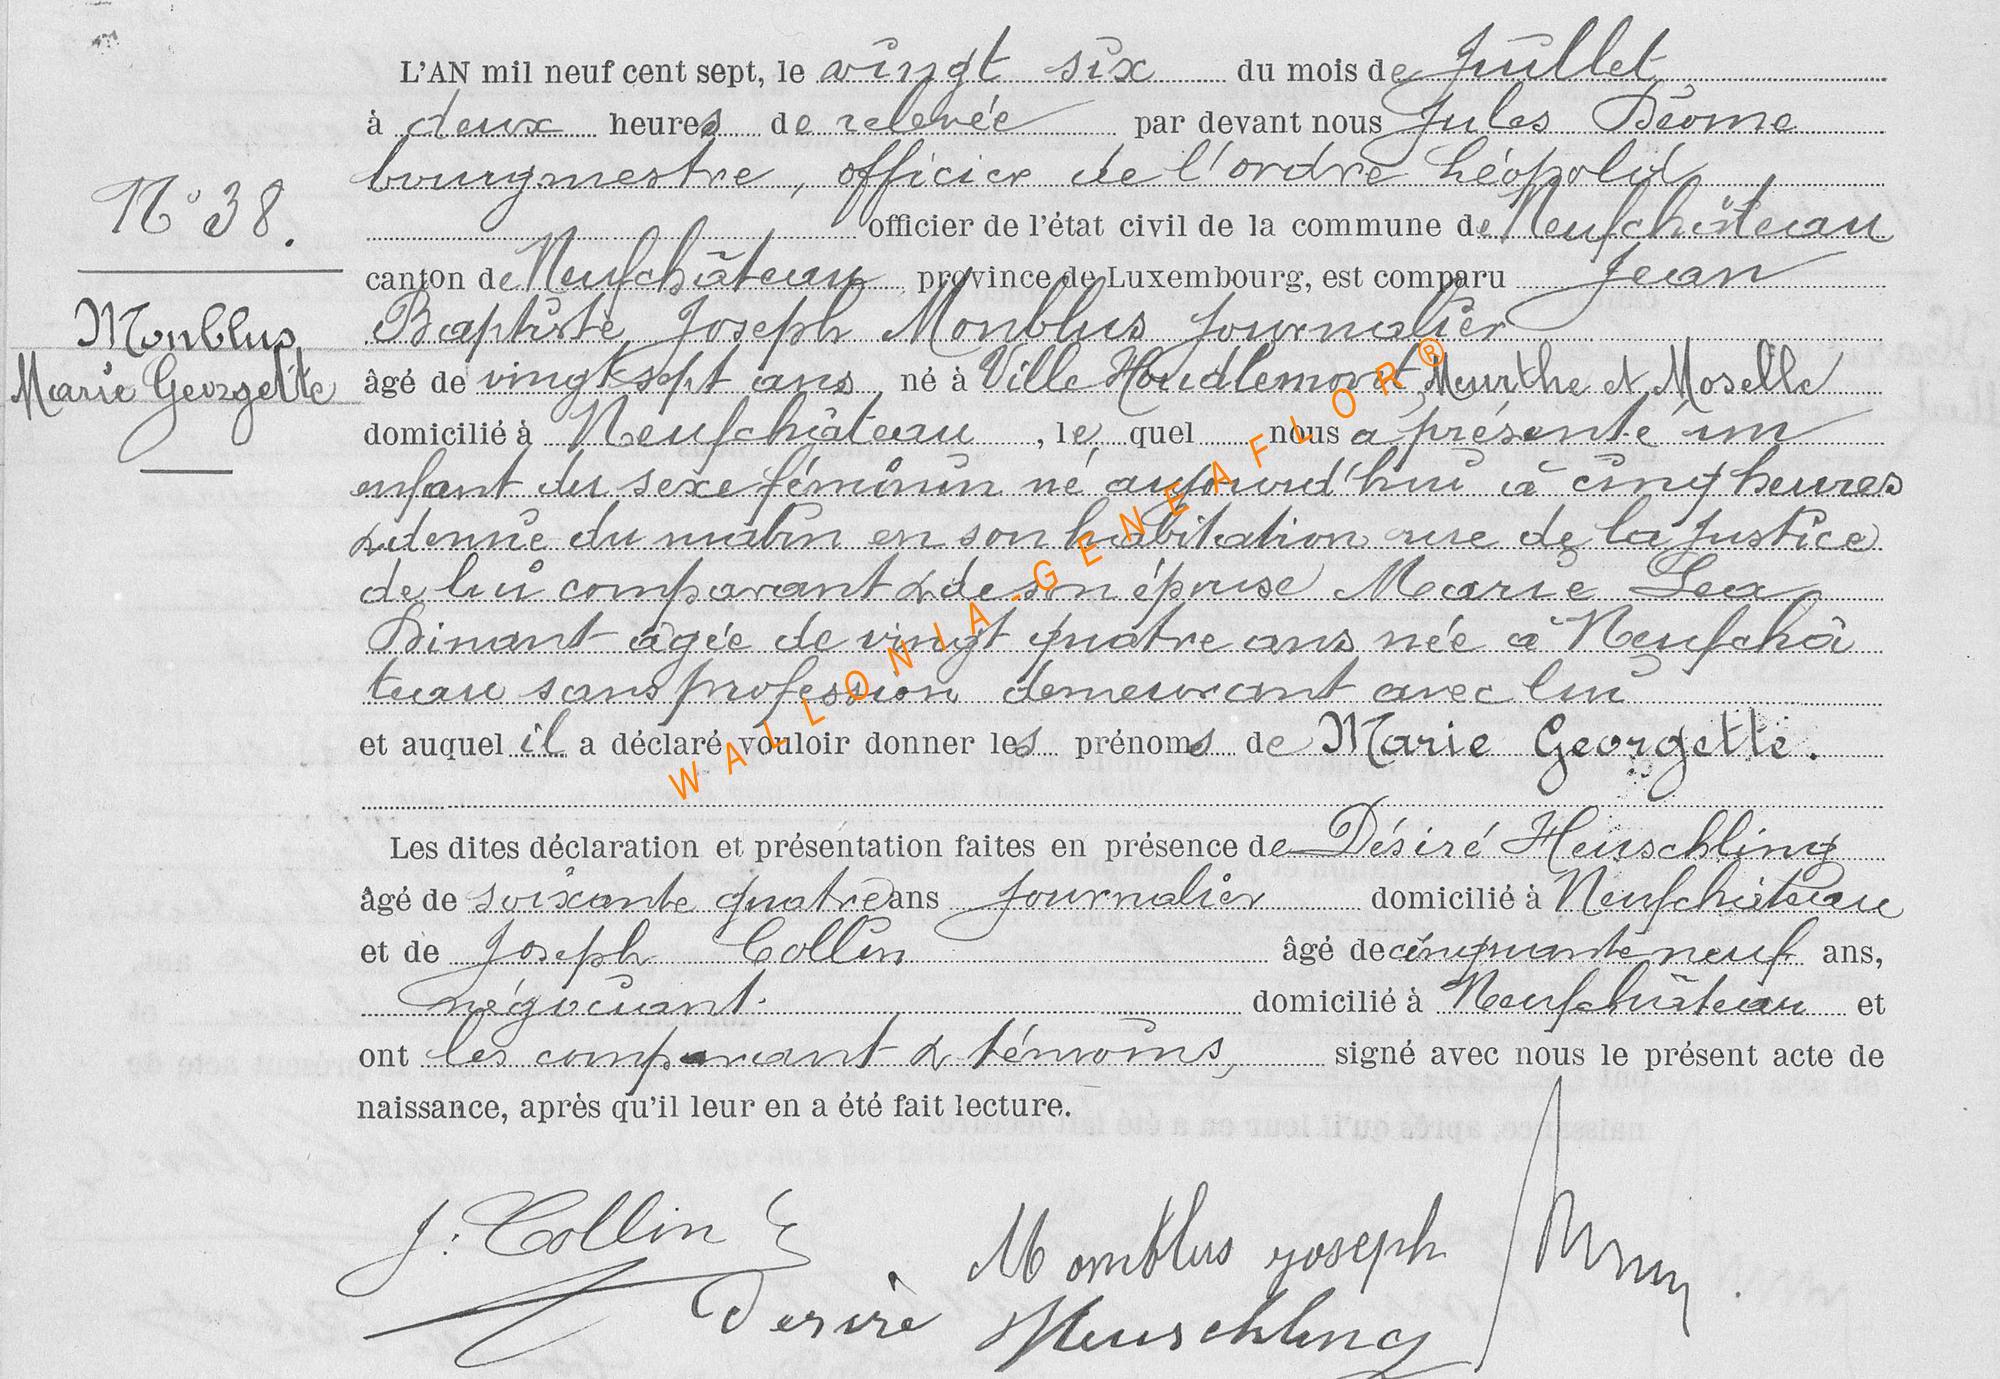 N° 38.
Monblus
Marie Georgette
L'AN mil neuf cent sept, le vingt six du mois de Juillet
à deux heures de relevée par devant nous Jules Déome
bourgmestre, officier de l'ordre Léopold
officier de l'état civil de la commune de Neufchâteau
canton de Neufchâteau province de Luxembourg, est comparu Jean
Baptiste Joseph Monblus journalier
âgé de vingt sept ans, né à Ville Houdlemont Meurthe et Moselle
domicilié à Neufchâteau, le quel nous a présenté un
enfant du sexe féminin né aujourd'hui à cinq heures
& demie du matin en son habitation rue de la Justice
de lui comparant & de son épouse Marie Lea
Dinant âgée de vingt quatre ans née à Neufchâ
teau sans profession demeurant avec lui
et auquel il a déclaré vouloir donner les prénoms de Marie Georgette.
Les dites déclaration et présentation faites en présence de Désiré Heuschling
âgé de soixante quatre ans journalier domicilié à Neufchâteau
et de Joseph Collin âgé de cinquante neuf ans,
négociant domicilié à Neufchâteau et
ont les comparant & témoins, signé avec nous le présent acte de
naissance, après qu'il leur en a été fait lecture.
J. Collin
Monblus joseph
Desiré Heuschling
WALLONIA-GENEAFLOR®